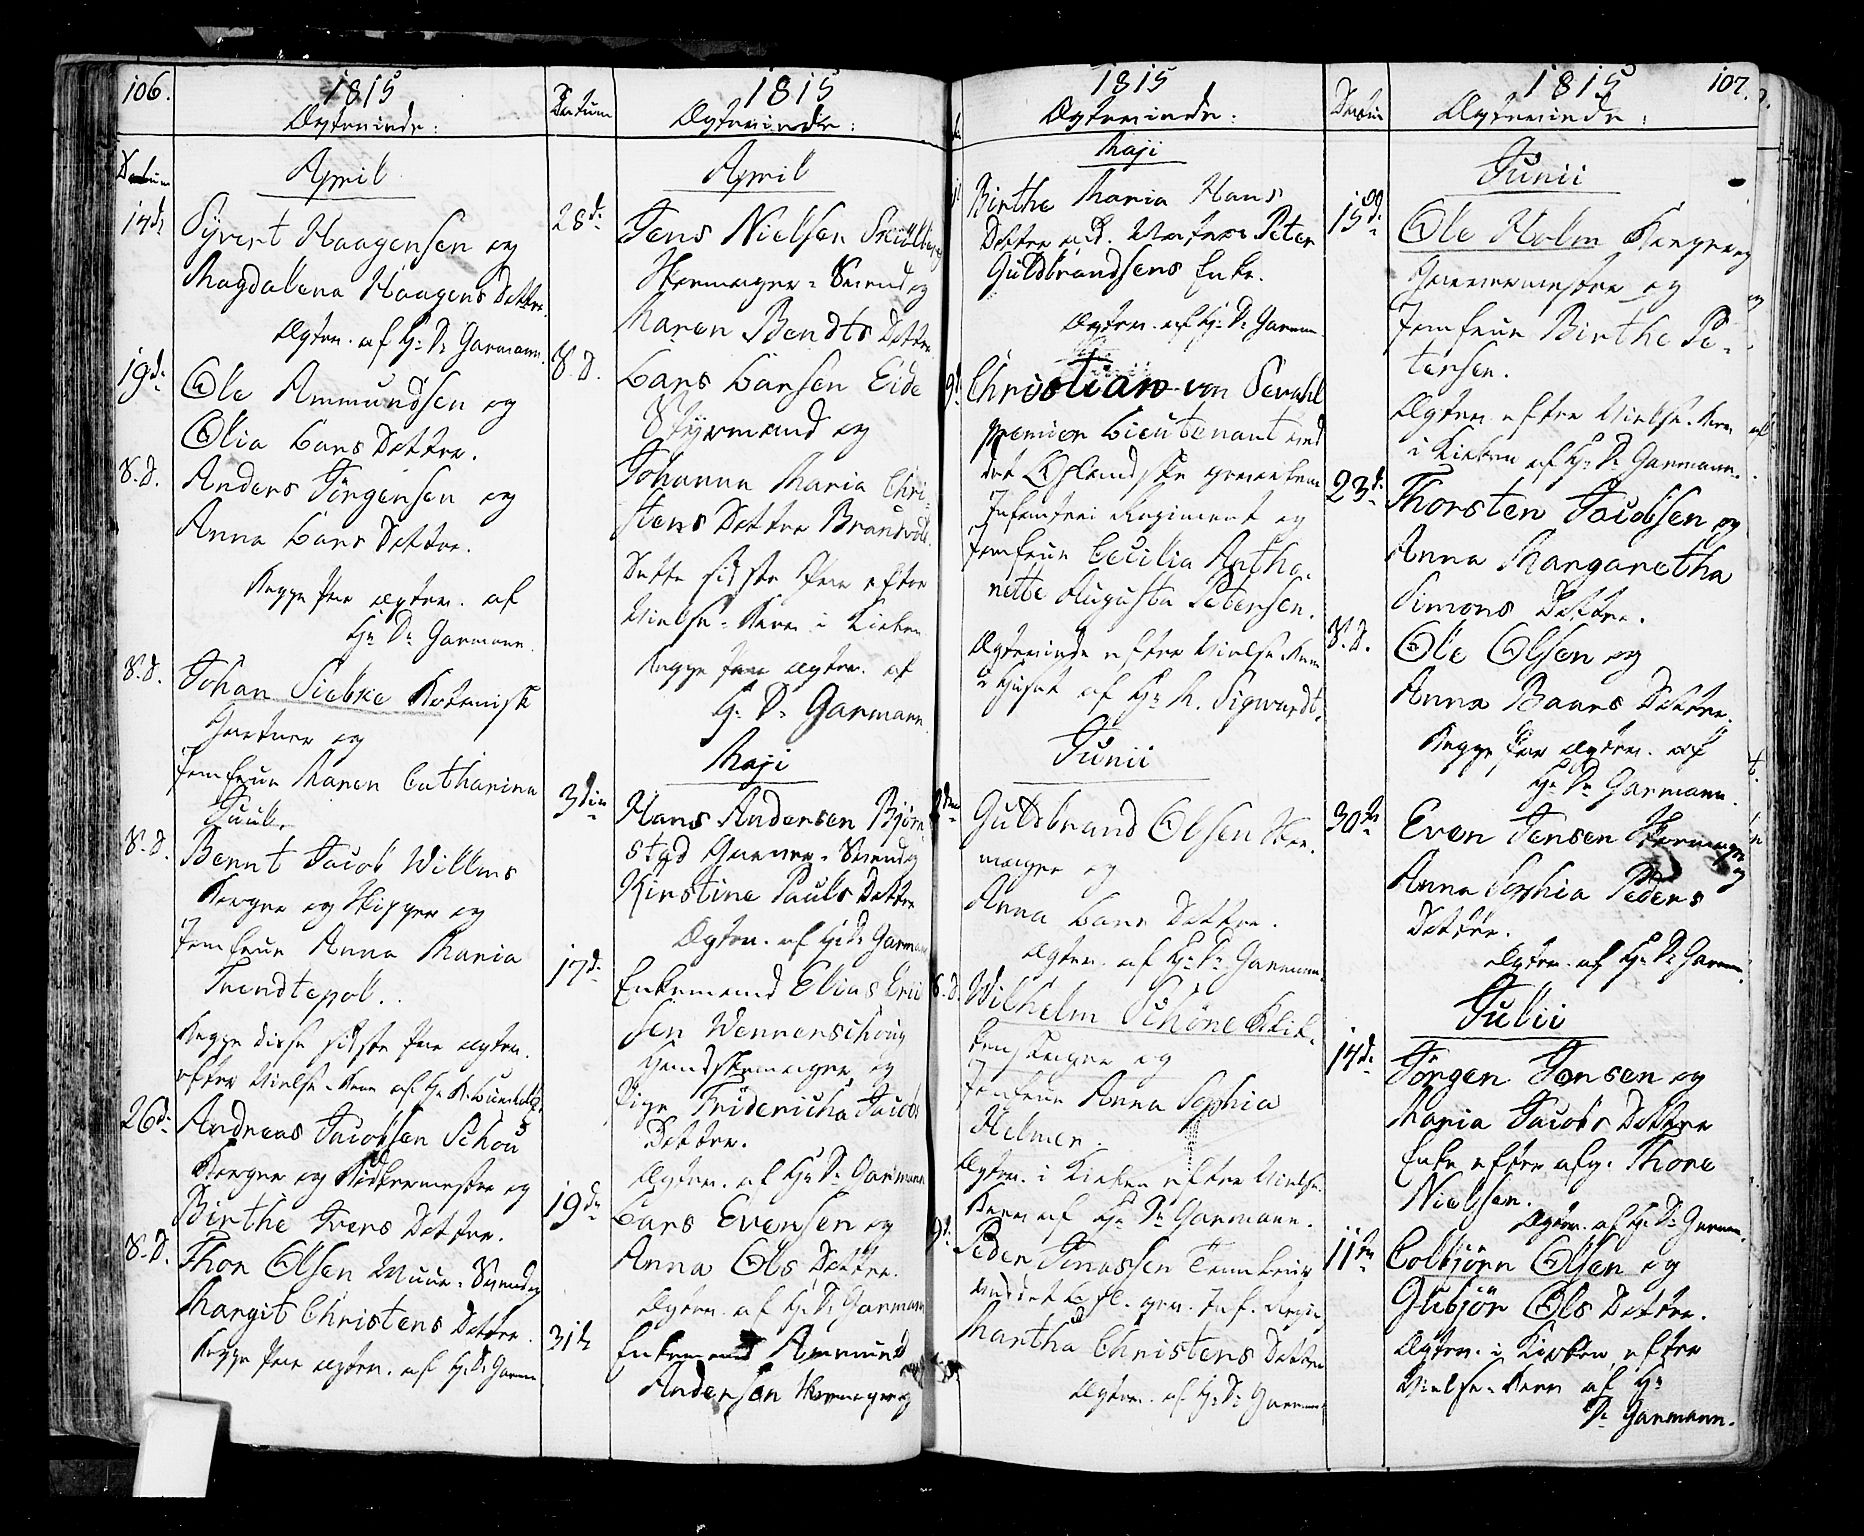 106.
1815
Ægteviede:
Datum
April
14de
Syvert Haagensen og
Magdalena Haagens Datter.
Ægtev. af Hr. Dr. Garmann.
19de
Ole Ammundsen og
Olia Lars Datter.
S. D.
Anders Jörgensen og
Anna Lars Datter.
Begge Par ægtev. af
Hr. Dr. Garmann.
S. D.
Johan Siebke Botanisk
Gartner og
Jomfrue Maren Catharina
Juul.
S. D.
Bernt Jacob Willums
Borger og Skipper og
Jomfrue Anna Maria
Trendtepol.
Begge disse sidste Par ægtev.
efter Vielse-Brev af Hr.
26de
Andreas Jacobsen Schou
Borger og og
Birthe Ivers Datter.
S. D.
Thor Olsen Muur-Svend og
Margit Christens Datter.
Begge Par ægtev. af Hr. Dr. Garmann
Datum
1815
Ægteviede:
April
28de
Jens Nielsen
Skomager-Svend og
Maren Bendts Datter
S. D.
Lars Larsen Eide
Styrmand og
Johanna Maria Chri-
stens Datter
Dette sidste Par efter
Vielse-Brev i Kirken
Begge Par ægtev. af
Hr. Dr. Garmann
Maji
3die
Hans Andersen Björn
stad Garver-Svend og
Kirstine Pauls Datter
Ægtev. af Hr. Dr. Garmann
17de
Enkemand Elias Erii
sen Wennerschoug
Handskemager og
Pige Fridericha Jacobs
Datter.
Ægtev. af Hr. Dr. Garmann
19de
Lars Evensen og
Anna Ols Datter.
Ægtev. af Hr. Dr. Garmann
31te
Enkemand Ammund
Andersen Skomager og
1815
Ægteviede:
Maji
Birthe Maria Hans
Datter Peter
Guldbrandsens Enke.
Ægtev. af Hr. Dr. Garmann
Christian von
premier Lieutenant ved
det
Infanterie Regiment og
Jomfrue Cecilia Antho-
nette Augusta Petersen.
Ægteviede efter Vielse-Brev
i Huset af Hr. M. Sigwardt.
Junii
Guldbrand Olsen Sko-
mager og
Anna Lars Datter.
Ægtev. af Hr. Dr. Garmann.
S. D.
Wilhelm Schöne Klok-
og
Jomfrue Anna Sophia
Helmer.
Ægtev. i Kirken efter Vielse-
Brev af Hr. Dr. Garmann.
9de
Peder Jonassen
Inf. Regim.
Martha Christens Datter
Ægtev. af Hr. Dr. Garmann
Datum
1815
107.
Ægteviede:
Junii
15de
Ole Holm Borger og
og
Jomfrue Birthe Pe-
tersen.
Ægtev. efter Vielse-Brev
i Kirken af Hr. Dr. Garmann.
23de
Thorsten Jacobsen og
Anna Margaretha
Simons Datter.
S. D.
Ole Olsen og
Anna Baars Datter.
Begge Par ægtev. af
Hr. Dr. Garmann.
30te
Even Jensen Skomager
og
Anna Sophia Peders
Datter.
Ægtev. af Hr. Dr. Garmann
Julii
14de
Jörgen Jensen og
Maria Jacobs Datter
Enke efter afg. Thore
Nielsen.
Ægtev. af Hr. Dr. Garmann.
11te
Colbjörn Olsen og
Gubjör Ols Datter.
Ægtev. i Kirken efter
Vielse-Brev af Hr
Dr. Garmann.